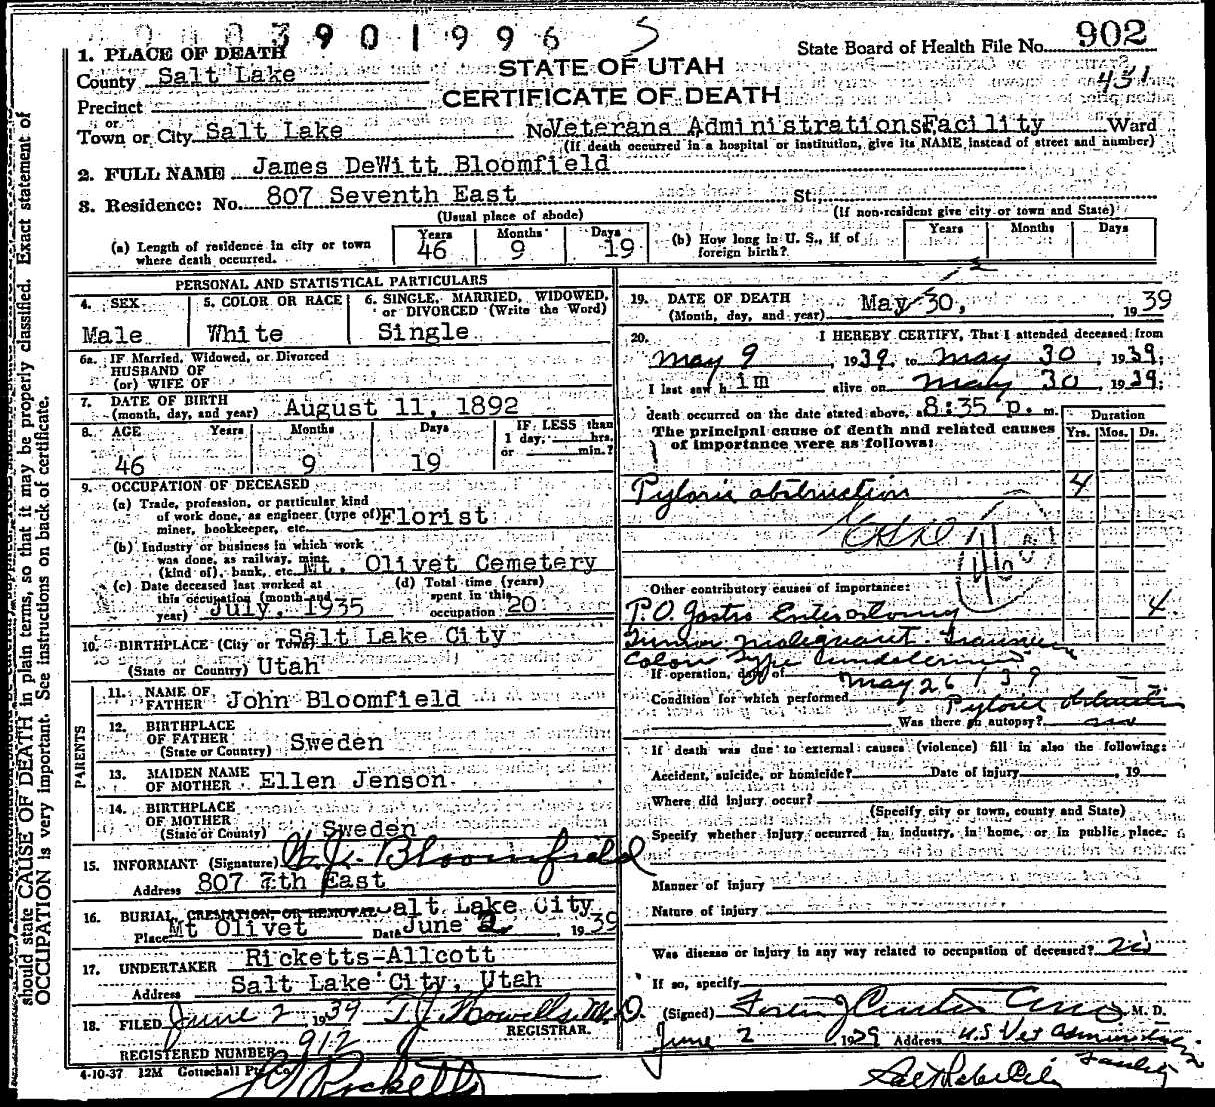 0 0 8 3 9 0 1 9 9 6 S
State Board of Health File No. 902
431
1. PLACE OF DEATH
County Salt Lake
STATE OF UTAH
CERTIFICATE OF DEATH
Precinct
or
Town or City Salt Lake No. Veterans Administrations Facility Ward
(If death occurred in a hospital or institution, give its NAME instead of street and number)
2. FULL NAME James DeWitt Bloomfield
3. Residence: No. 807 Seventh East St.
(Usual place of abode) (If non-resident give city or town and State)
(a) Length of residence in city or town where death occurred. Years 46 Months 9 Days 19
(b) How long in U. S., if of foreign birth? Years Months Days
PERSONAL AND STATISTICAL PARTICULARS
4. SEX Male
5. COLOR OR RACE White
6. SINGLE, MARRIED, WIDOWED, or DIVORCED (Write the Word) Single
6a. IF Married, Widowed, or Divorced
HUSBAND OF
(or) WIFE OF
7. DATE OF BIRTH
(month, day, and year) August 11, 1892
8. AGE Years Months Days IF LESS than
1 day, hrs.
or min.?
46 9 19
9. OCCUPATION OF DECEASED
(a) Trade, profession, or particular kind
of work done, as engineer (type of) Florist
miner, bookkeeper, etc.
(b) Industry or business in which work
was done, as railway, mine
(kind of), bank, etc. Mt. Olivet Cemetery
(c) Date deceased last worked at
this occupation (month and
year) July, 1935
(d) Total time (years)
spent in this
occupation 20
10. BIRTHPLACE (City or Town) Salt Lake City
(State or County) Utah
PARENTS
11. NAME OF
FATHER John Bloomfield
12. BIRTHPLACE
OF FATHER
(State or Country) Sweden
13. MAIDEN NAME
OF MOTHER Ellen Jenson
14. BIRTHPLACE
OF MOTHER
(State or County) Sweden
15. INFORMANT (Signature) Bloomfield
Address 807 7th East
16. BURIAL, CREMATION, OR REMOVAL Salt Lake City
Place Mt Olivet Date June 2, 1939
17. UNDERTAKER Ricketts-Allcott
Address Salt Lake City, Utah
18. FILED June 2, 1939 M.D.
REGISTRAR.
REGISTERED NUMBER 912
4-10-37 12M Gottschall Ptg. Co.
Ricketts
19. DATE OF DEATH
(Month, day, and year) May 30, 1939
20. I HEREBY CERTIFY, That I attended deceased from
May 9 1939, to May 30, 1939;
I last saw him alive on May 30, 1939;
death occurred on the date stated above, at 8:35 p. m.
The principal cause of death and related causes
of importance were as follows:
Duration
Yrs. Mos. Ds.
Pyloric obstruction 4
Other contributory causes of importance:
P.O. Gastro Enterostomy 4.
Colon Type
If operation, date of May 26 / 39
Condition for which performed Pyloric obstruction
Was there an autopsy? no
If death was due to external causes (violence) fill in also the following:
Accident, suicide, or homicide? Date of injury , 19
Where did injury occur?
(Specify city or town, county and State)
Specify whether injury occurred in industry, in home, or in public place.
Manner of injury
Nature of injury
Was disease or injury in any way related to occupation of deceased? no
If so, specify
(Signed) M. D.
June 2 1939 Address U.S Vet Facility
Salt Lake City
should state CAUSE OF DEATH in plain terms, so that it may be properly classified. Exact statement of
OCCUPATION is very important. See instructions on back of certificate.